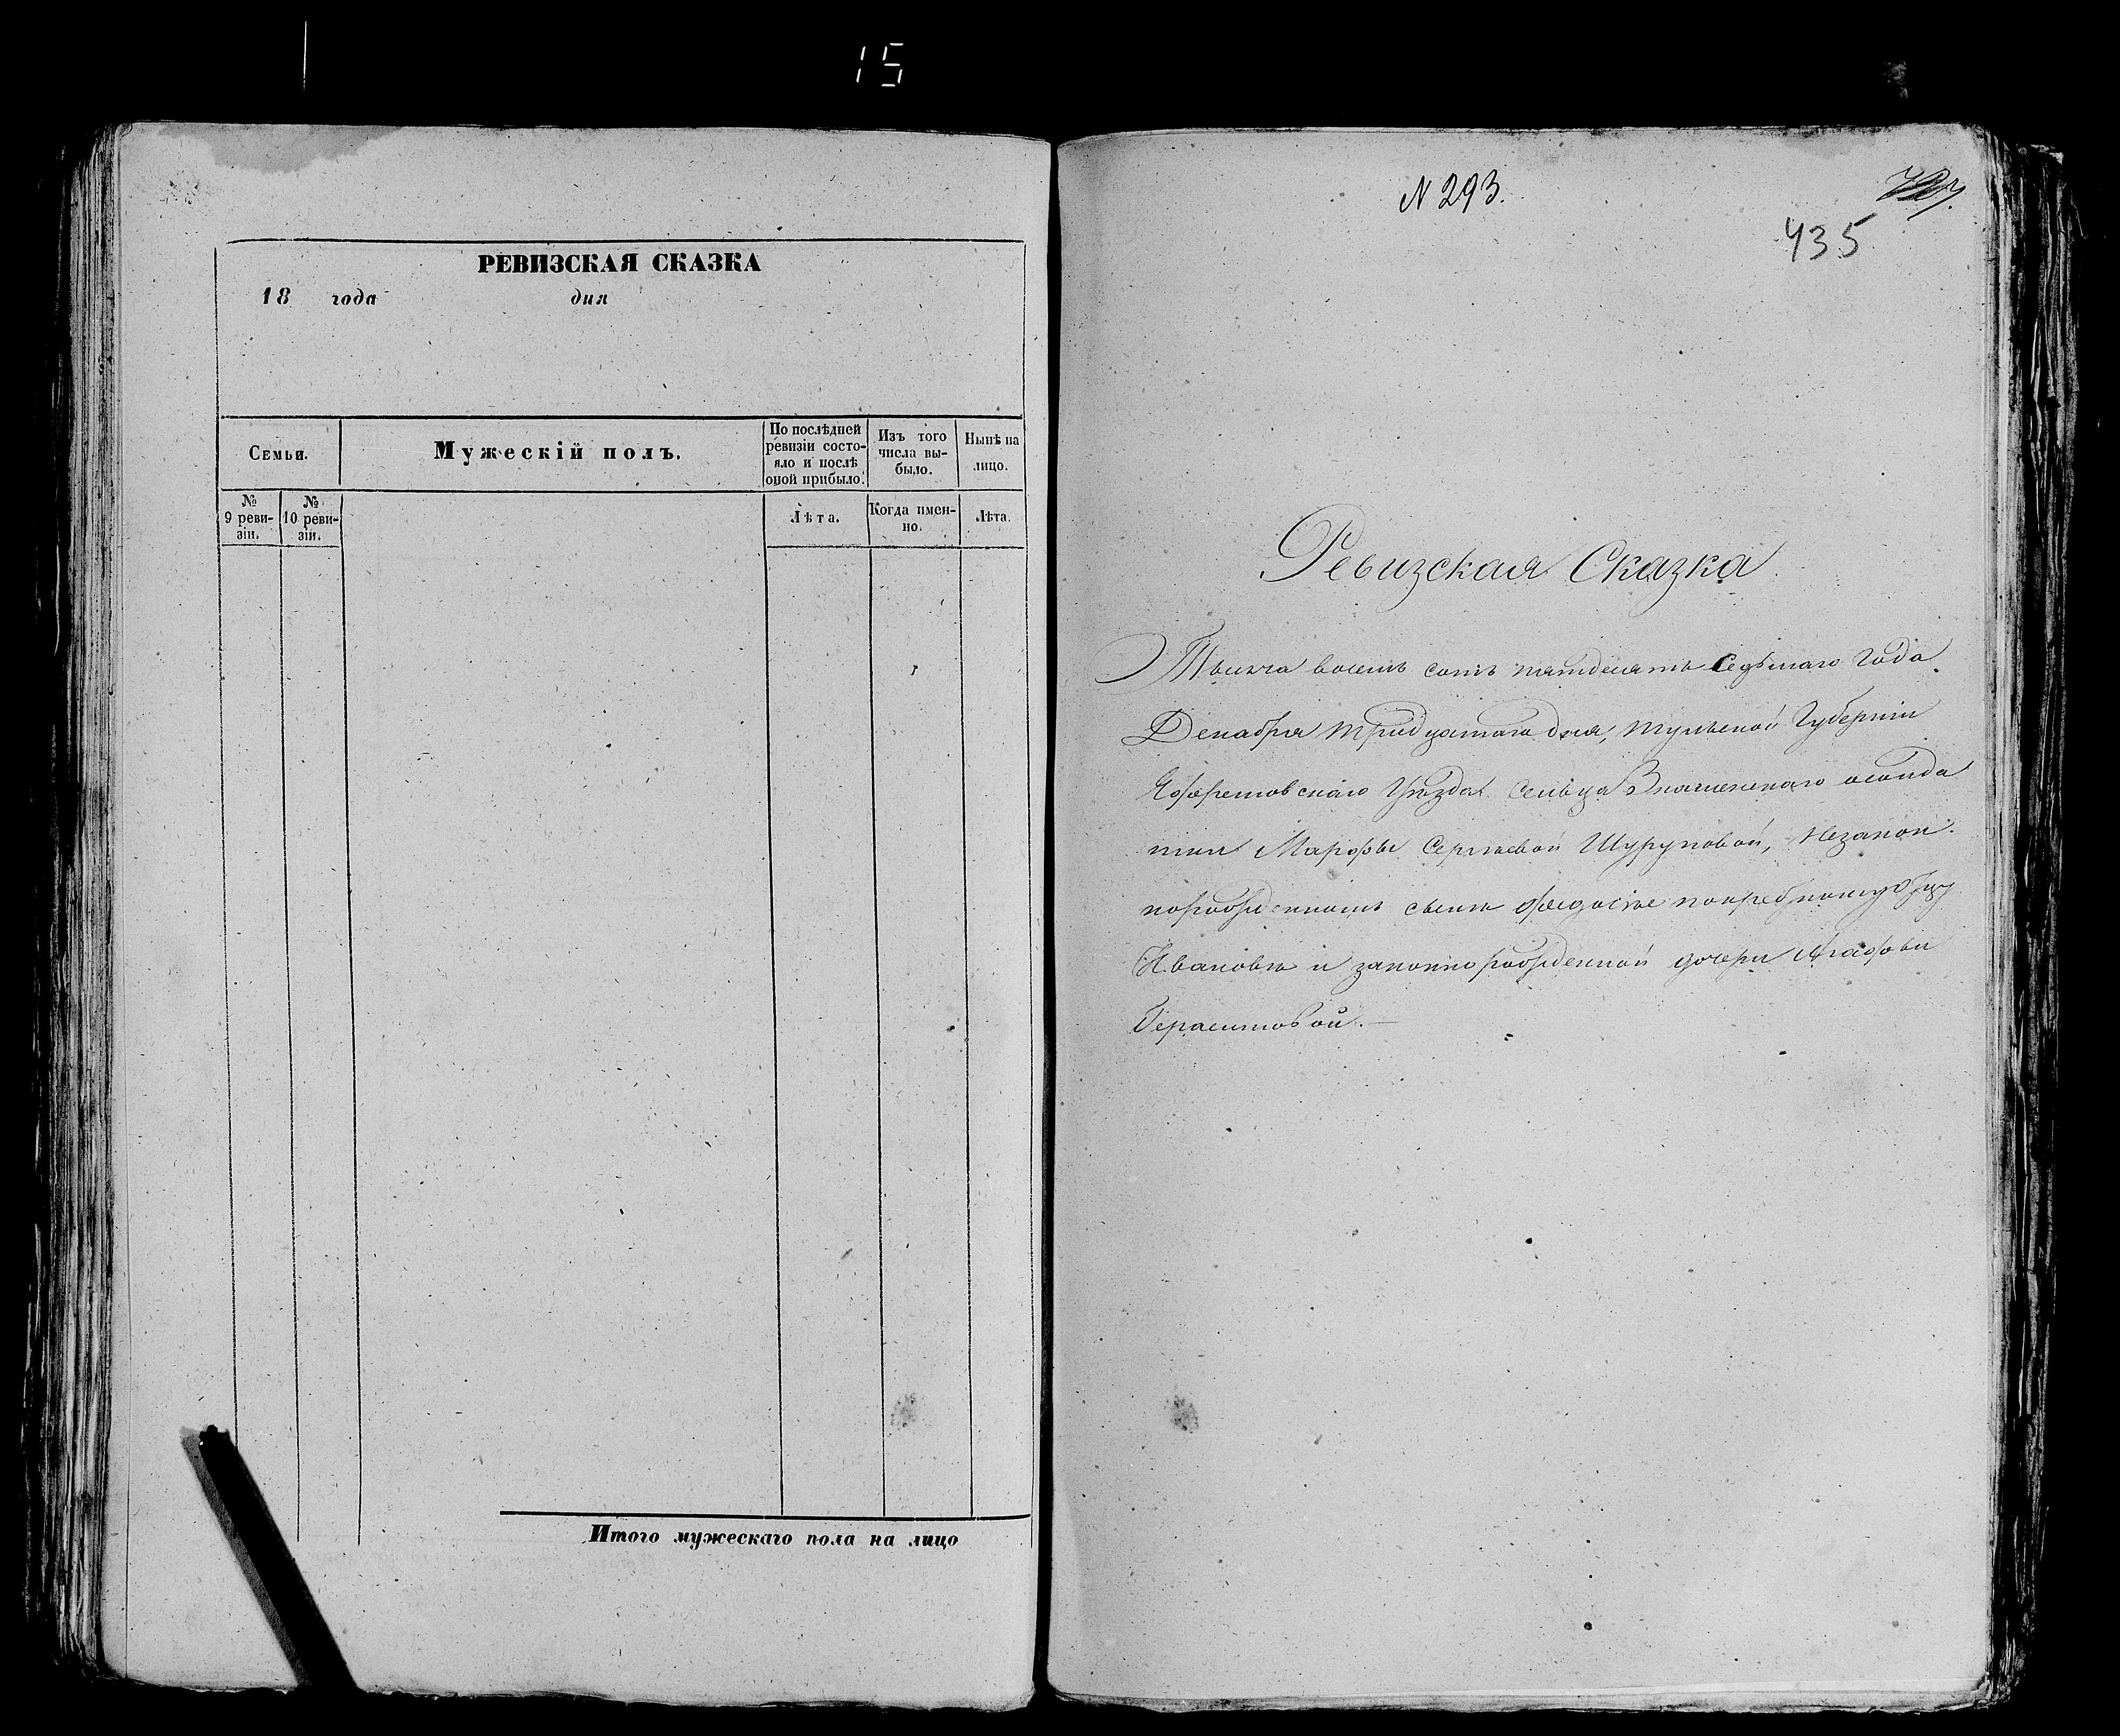 15
РЕВИЗСКАЯ СКАЗКА
18 года дня
Семьи.
Мужескій полъ.
По послѣдней ревизіи состояло и послѣ оной прибыло.
Изъ того числа выбыло.
Нынѣ на лицо.
№ 9 ревизіи.
№ 10 ревизіи.
Лѣта.
Когда именно.
Лѣта.
Итого мужескаго пола на лицо
N 293.
435
Ревизская Сказка
Тысяча восемь сотъ пятдесятъ седьмаго года
Декабря тридцатаго дня, тульской Губерніи
Ефремовскаго Уѣзда сельца Знаменскаго
Марфы Сергѣевой Шуруповой, незакон
норожденномъ сынѣ Федосѣе
Ивановѣ и законнорожденной дочери Агафьи
Герасимовой.—